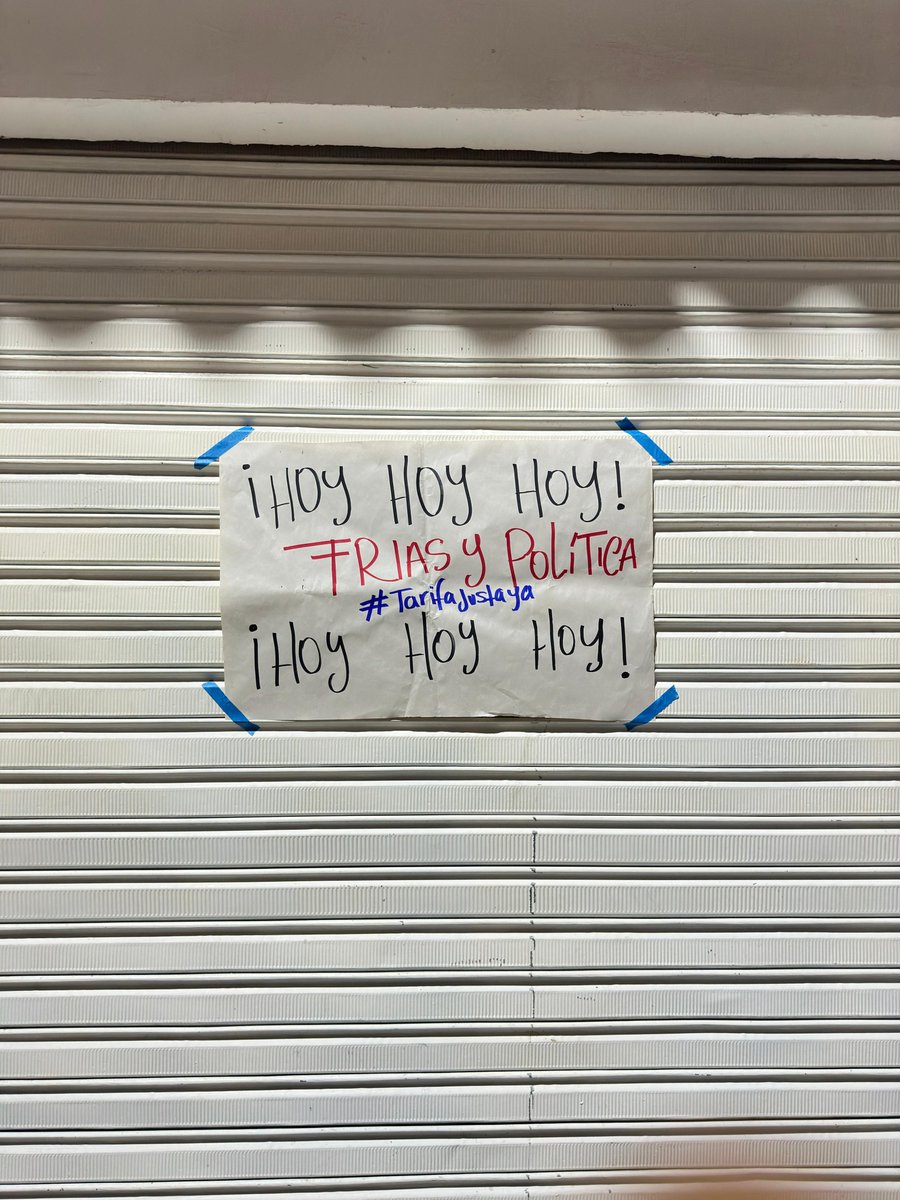 ¡HOY HOY HOY!
FRIAS Y POLÍTICA
#Tarifajustaya
¡HOY HOY HOY!